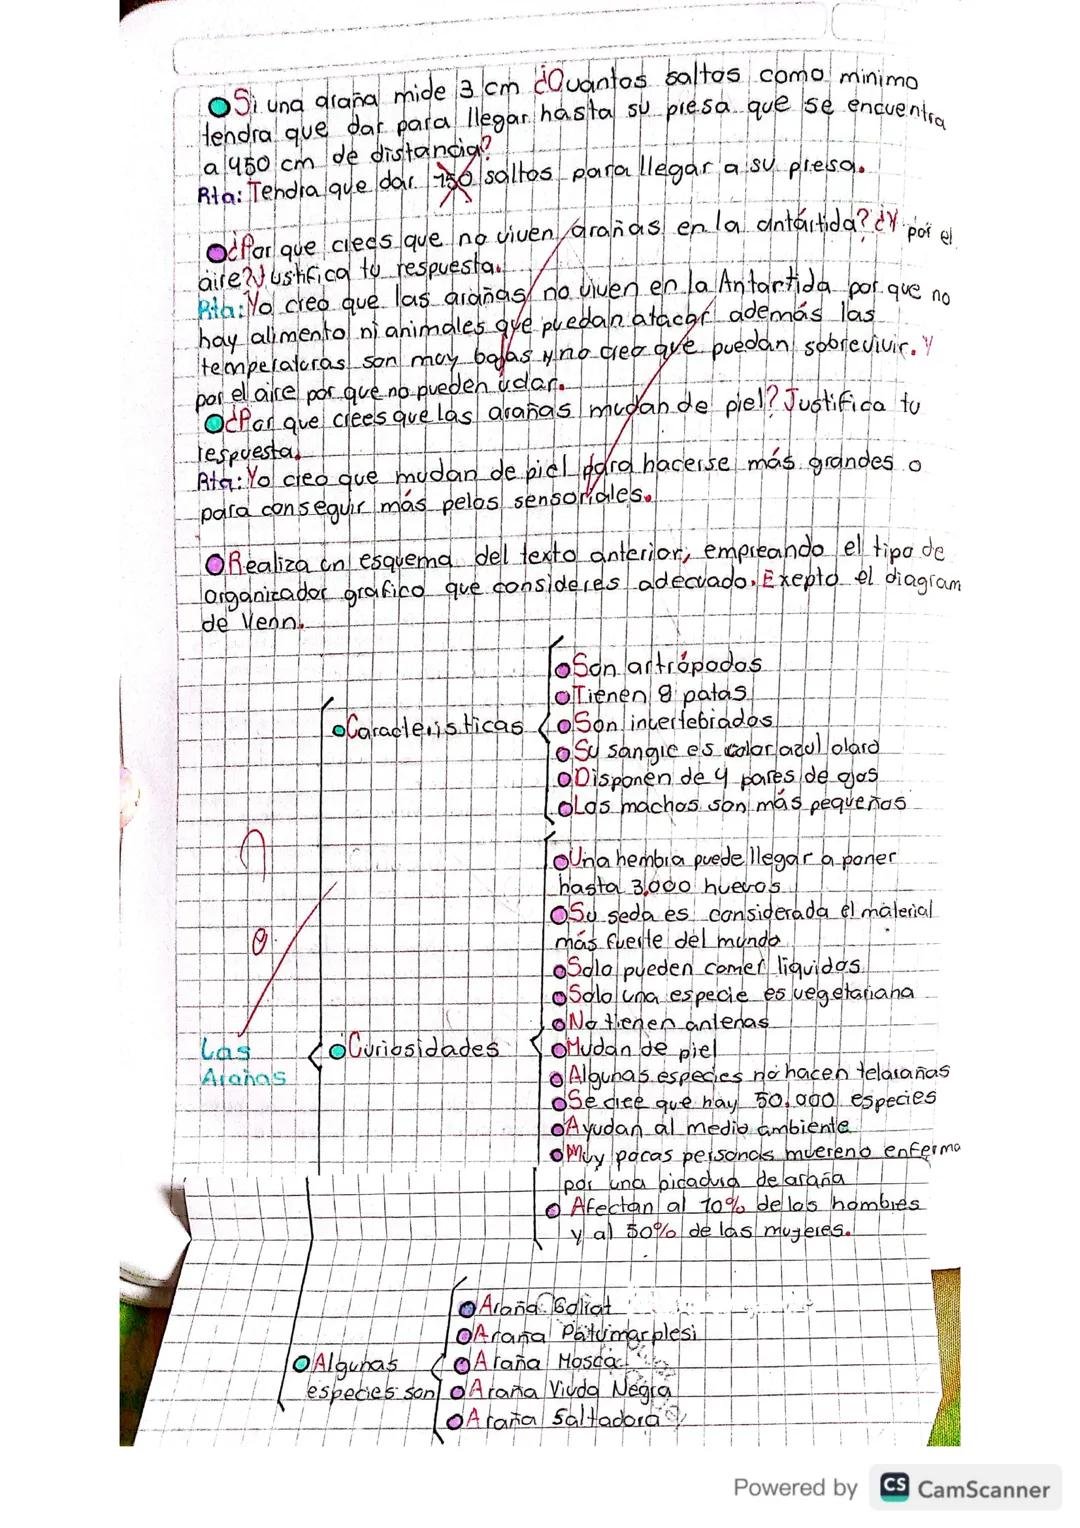 Si una araña mide 3 cm ¿Cuantos saltos como minimo
tendra que dar para llegar hasta su presa que se encuentra
a 450 cm de distancia?
Rta: Tendra que dar 150 saltos para llegar a su presa.
¿Por que crees que no viven arañas en la antártida? ¿Y por el
aire? Justifica tu respuesta.
Rta: Yo creo que las arañas no viven en la Antartida por que no
hay alimento ni animales que puedan atacar además las
temperaturas son muy bajas y no creo que puedan sobrevivir. Y
por el aire por que no pueden volar.
¿Por que crees que las arañas mudan de piel? Justifica tu
respuesta.
Rta: Yo creo que mudan de piel para hacerse más grandes o
para conseguir más pelos sensoriales.
Realiza un esquema del texto anterior, empreando el tipo de
organizador grafico que consideres adecuado. Exepto el diagram
de Venn.
Son artrópodos
Tienen 8 patas
Caracteristicas
Son invertebrados
Su sangre es color azul claro
Disponen de 4 pares de ojos
Los machos son más pequeños
Una hembra puede llegar a poner
hasta 3.000 huevos
Su seda es considerada el material
más fuerte del mundo
Solo pueden comer liquidos
Solo una especie es vegetariana
No tienen antenas
Las
Arañas
Curiosidades
Mudan de piel
Algunas especies no hacen telarañas
Se cree que hay 50.000 especies
Ayudan al medio ambiente
Muy pocas personas muereno enferma
por una picadura de araña
Afectan al 10% de los hombres
y al 50% de las mujeres.
Araña Goliat
Araña Patumarplesi
Algunas
especies son
Araña Mosca
Araña Viuda Negra
Araña Saltadora
Powered by CS CamScanner